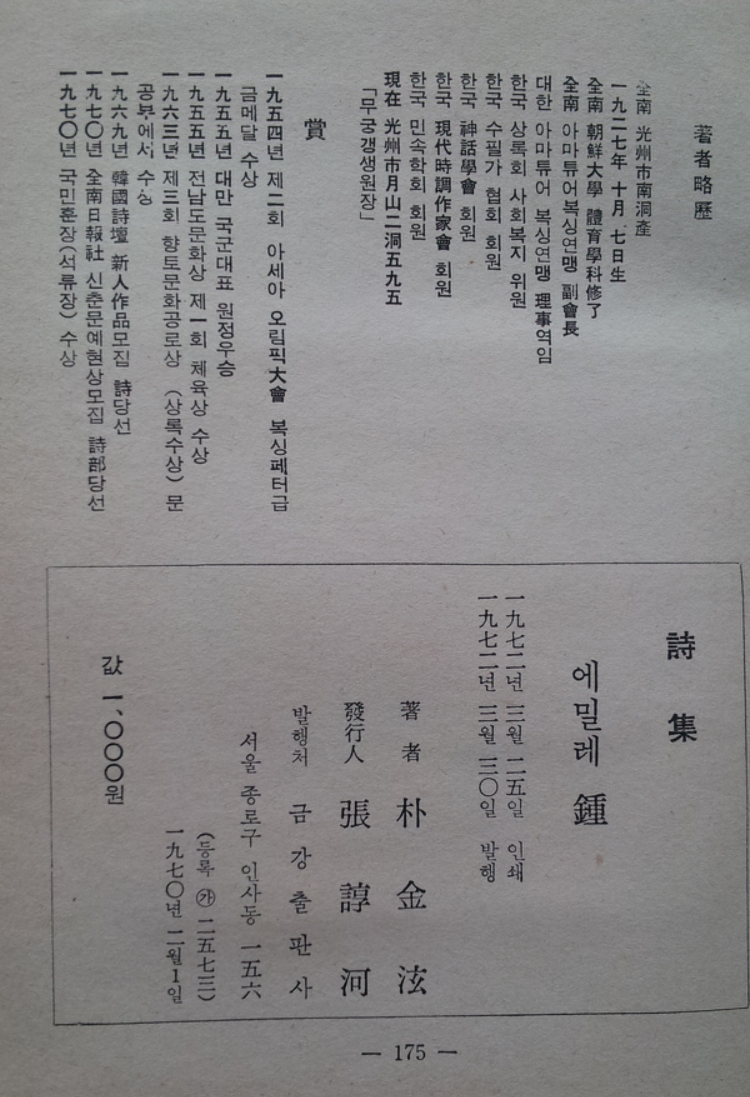 著者略歷
全南 光州市南洞產
一九二七年 十月 七日生
全南 朝鮮大學 體育學科修了
全南 아마튜어복싱연맹 副會長
대한 아마튜어 복싱연맹 理事역임
한국 상록회 사회복지 위원
한국 수필가 협회 회원
한국 神話學會 회원
한국 現代時調作家會 회원
한국 민속학회 회원
現在 光州市月山二洞五九五
「무궁갱생원장」
賞
一九五四년 제二회 아세아 오림픽大會 복싱페터급
금메달 수상
一九五五년 대만 국군대표 원정우승
一九五五년 전남도문화상 제一회 체육상 수상
一九六三년 제三회 향토문화공로상 (상록수상) 문
공부에서 수상
一九六九년 韓國詩壇 新人作品모집 詩당선
一九七〇년 全南日報社 신춘문예현상모집 詩部당선
一九七〇년 국민훈장(석류장) 수상
詩集
에밀레 鍾
一九七二년 三월 二五일 인쇄
一九七二년 三월 三〇일 발행
著者 朴金泫
發行人 張諄河
발행처 금강출판사
서울 종로구 인사동 一五六
(등록 ㉮ 二五七三)
一九七〇년 二월1일
값 一、〇〇〇원
— 175 —